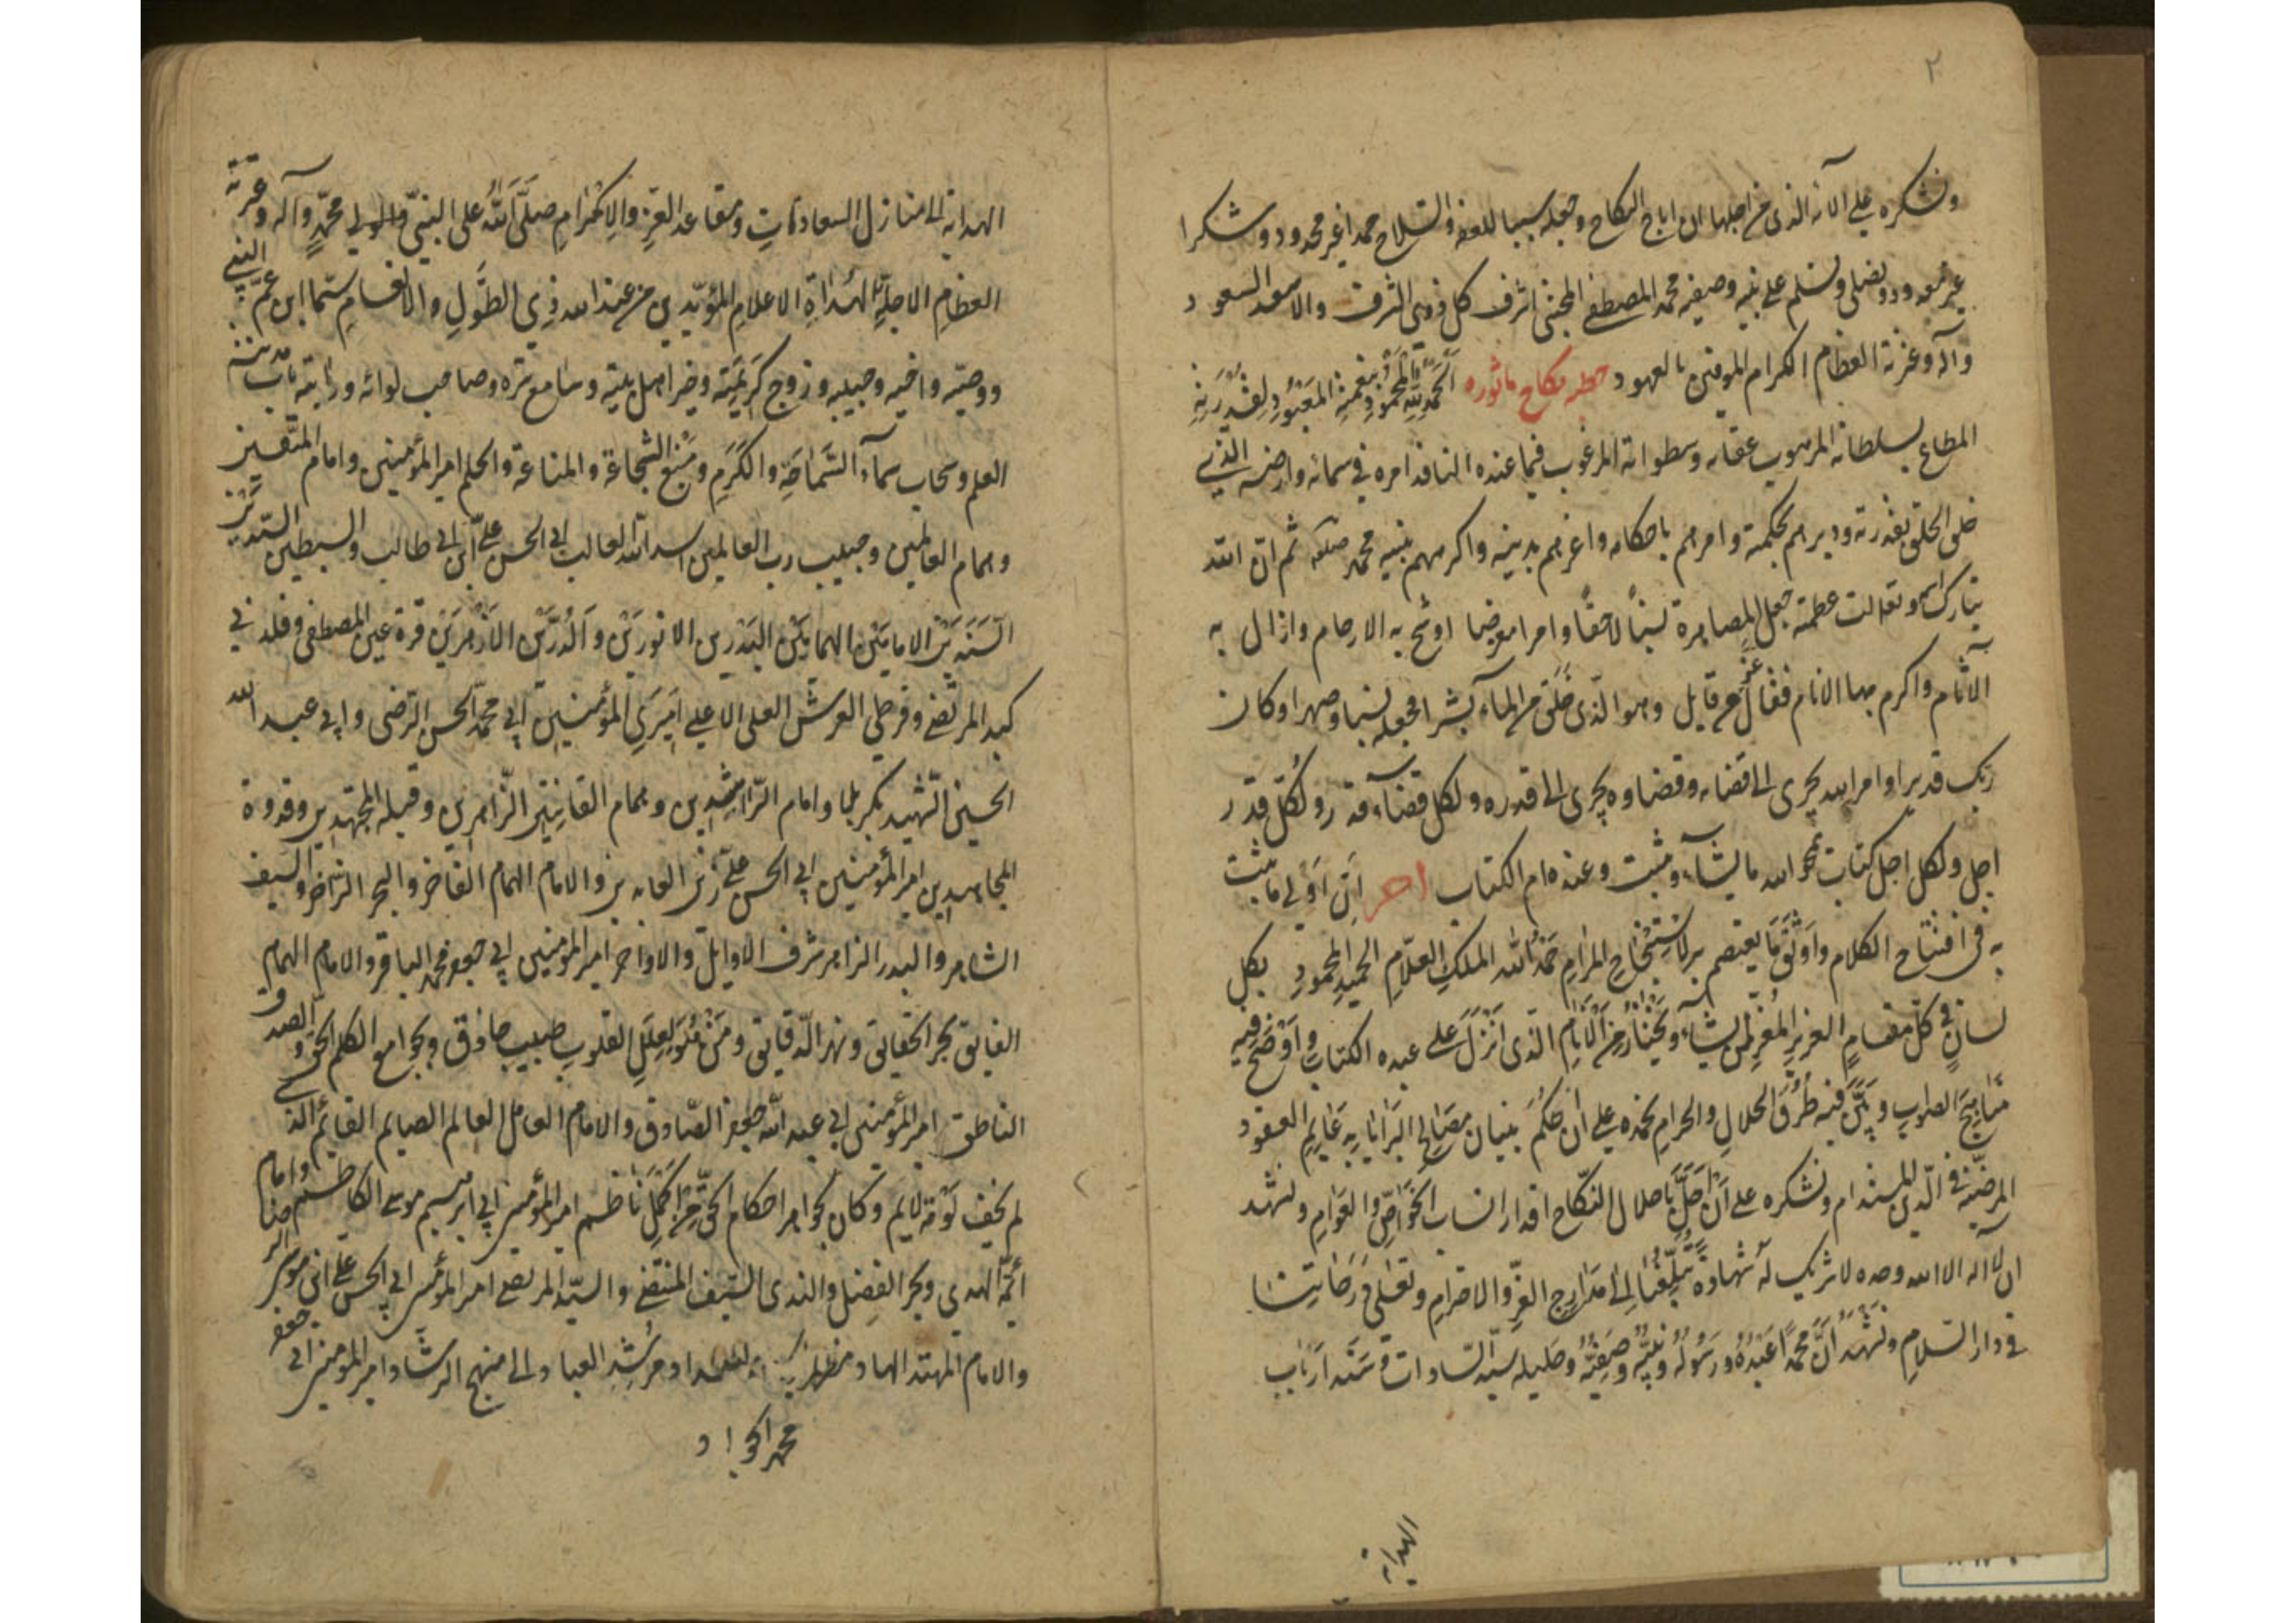 ٢
ونشكره على آلائه الذى من اجلها ان اباح النكاح وجعله سببا للعفة والصلاح حمدا غير محدود وشكرا
غير معدود ونصلى ونسلم على نبيه وصفيه محمد المصطفى المجتبى اشرف كل ذوى الشرف والاسعد السعود
وآله وعترته العظام الكرام الموفين بالعهود خطبه نكاح ماثوره الحمد لله المحمود بنعمته المعبود لقدرته
المطاع بسلطانه المرهوب عقابه وسطواته المرغوب فيما عنده النافذ امره فى سمائه وارضه الذى
خلق الخلق بقدرته ودبرهم بحكمته وامرهم باحكامه واعزهم بدينه واكرمهم بنبيه محمد صلعم ثم ان الله
تبارك اسمه وتعالت عظمته جعل المصاهرة نسبًا لاحقًا وامرا مفترضا اوشج به الارحام وازال به
الآثام واكرم بها الانام فقال عز من قايل وهو الذى خلق من الماء بشرا فجعله نسبا وصهرا وكان
ربك قديرا وامر الله يجرى الى قضائه وقضاوه يجرى الى قدره ولكل قضاء قدر ولكل قدر
اجل ولكل اجل كتاب يمحو الله ما يشاء ويثبت وعنده ام الكتاب اخر اِنّ اَولى ما يثبت
به فى افتتاح الكلام واَوثَق ما يعتصم به لاستنجاح المرام حَمْدُ الله الملكِ العلّامِ الحميدِ المحمودِ بكل
لسانٍ فى كلّ مقامٍ العزيزِ المُعِزِّ لمن يشاءُ ويختارُ من الانام الّذى اَنْزَلَ على عبده الكتاب واَوْضَحَ فيه
مناهجَ الصواب وبيّن فيه طُرُقَ الحلالِ والحرامِ نحمده على ان حكم بنيان مصالح البرايا به عزايم العقود
المرضيّة فى الدّين المستدام ونشكره على اَنْ اَحَلَّ باحلال النكّاح اقدار انساب الخواصِّ والعوامِ ونشهد
ان لا اله الا الله وحده لا شريك له شهادةً تُبَلِّغُنا الى مدارجِ العِزِّ والاحترامِ وتعلى درجاتنا
فى دار السّلام ونَشْهَدُ اَنَّ محمّدًا عَبْدُهُ ورَسُولُه ونبيُّه وصفيُّه وخليله سيّد السّادات وسند ارباب
الهداية
الهداية الى منازل السعادات ومقاعد العزِّ والاكرام صلّى اللهُ على النبىّ والولى محمّدٍ وآله وعترته
العظامِ الاجلّة الهُداةِ الاعلامِ المؤيّدين من عند الله ذى الطَّولِ والانعام سيّما ابن عمّ النبى
ووصيّه واخيه وحبيبه وزوج كريمته وخير اهل بيته وسامع سره وصاحب لوائه ورايته باب مدينة
العلم وسحاب سماء السَّماحَة والكَرَمِ ومنبع الشجاعة والمناعة والحلم امير المؤمنين وامام المتّقين
وهمام العالمين وحبيب رب العالمين اسد الله الغالب ابى الحسن علىّ ابن ابى طالب والسبطين السّيدين
السَّنَدَين الامامَين الهمامَين البدرين الانورَين والدُرّين الازهرَين قرة عين المصطفى وفلذتى
كبد المرتضى وقرطى العرش العلى الاعلى اميرى المؤمنين ابى محمّد الحسن الرضى وابى عبد الله
الحسين الشهيد بكربلا وامام الراشدين وهمام القانتين الزّاهدين وقبلة المجتهدين وقدوة
المجاهدين امير المؤمنين ابى الحسن علىّ زين العابدين والامام الهمام الفاخر والبحر الزّاخر والسيف
الشاهر والبدر الزاهر شرف الاوايل والاواخر امير المؤمنين ابى جعفر محمد الباقر والامام الهمام
الفايق بحر الحقايق ونهر الدّقايق ومن هو لعِلَلِ القلوب طبيب حاذق وبجوامع الكلم الحق والصدق
الناطق امير المؤمنين ابى عبد الله جعفر الصّادق والامام العامل العالم الصايم القائم الذى
لم يخف لَوْمة لايم وكان لجواهر احكام الحقّ اكمل ناظم امير المؤمنين ابى ابرهيم موسى الكاظم وامام
أئمّة الهدى وبحر الفضل والندى السَّيف المنتضى والسيّد المرتضى امير المؤمنين ابى الحسن على ابن موسى الرضا
والامام المهتد الهاد مظهر ومرشد العباد الى منهج الرشاد امير المؤمنين ابى جعفر
محمد الجواد